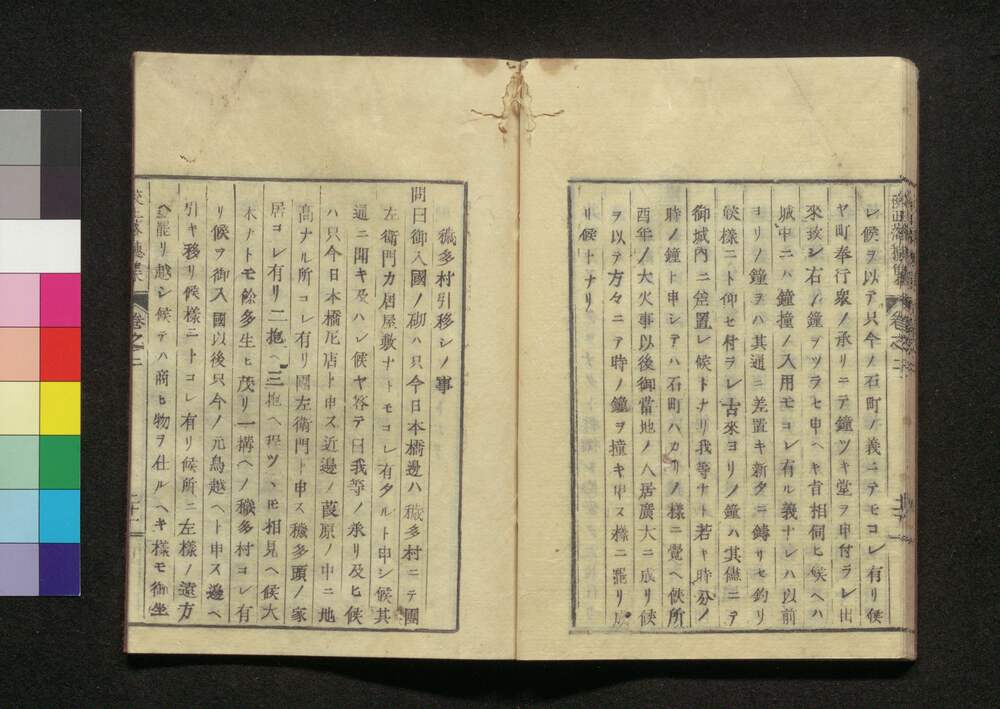 レ候ヲ以テ只今ノ石町ノ義ニテモコレ有リ候
ヤ町奉行衆ノ承リニテ鐘ツキ堂ヲ申付ラレ出
來致シ右ノ鐘ヲツラセ申ヘキ旨相伺ヒ候ヘハ
城中ニハ鐘撞ノ入用モコレ有ル義ナレハ以前
ヨリノ鐘ヲハ其通ニ差置キ新タニ鑄リセ釣リ
候樣ニト仰セ付ラレ古來ヨリノ鐘ハ其儘ニテ
御城內ニ差置レ候トナリ我等ナト若キ時分ノ
時ノ鐘ト申シテハ石町ハカリノ樣ニ覺ヘ候所
酉年ノ大火事以後御當地ノ人居廣大ニ成リ候
ヲ以テ方々ニテ時ノ鐘ヲ撞キ申ス樣ニ罷リ成
リ候トナリ
穢多村引移シノ事
問曰御入國ノ砌ハ只今日本橋邊ハ穢多村ニテ團
左衛門カ居屋敷ナトモコレ有タルト申シ候其
通ニ聞キ及ハレ候ヤ答テ曰我等ノ承リ及ヒ候
ハ只今日本橋尼店ト申ス近邊ノ葭原ノ中ニ地
高ナル所コレ有リ團左衛門ト申ス穢多頭ノ家
居コレ有リ二抱ヘ三抱ヘ程ツヽモ相見ヘ候大
木ナトモ餘多生ヒ茂リ一構ヘノ穢多村コレ有
リ候ヲ御入國以後只今ノ元鳥越ヘト申ス邊ヘ
引キ移リ候樣ニトコレ有リ候所ニ左樣ノ遠方
ヘ罷リ越シ候テハ商ヒ物ヲ仕ルヘキ樣モ御坐
卷之二